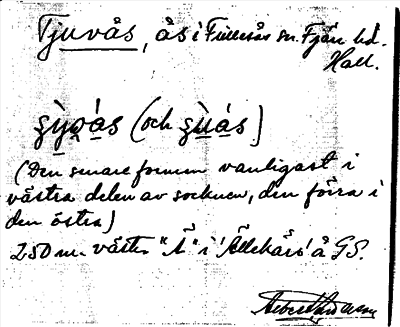 Tjuvås, ås i Fullesås sn. Fjäre hd.
Hall.
ʂy̆ọás (och ʂùás)
(Den senare formen vanligast i
västra delen av socknen, den förra i
den östra)
250 m. väster "Ä" i 'Ällekärs' å GS.